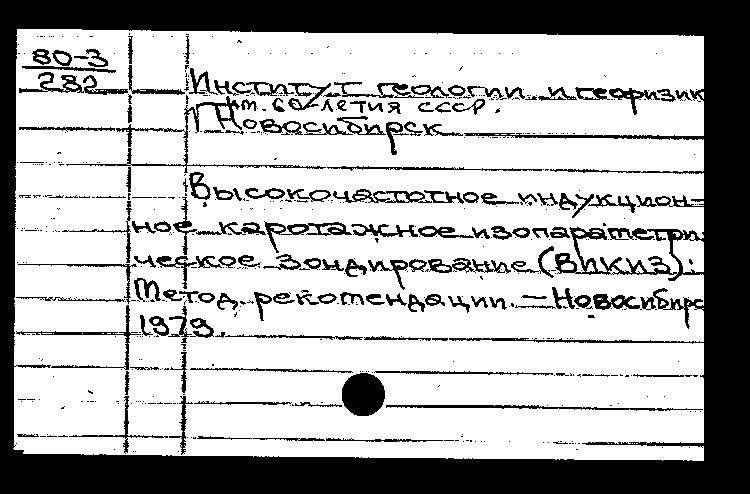 80-3
282
Институт геологии и геофизик
им. 60-летия СССР.
Новосибирск
Высокочастотное индукцион-
ное каротажное изопараметри
ческое зондирование (ВИКИЗ):
Метод. рекомендации. — Новосибирс
1979.